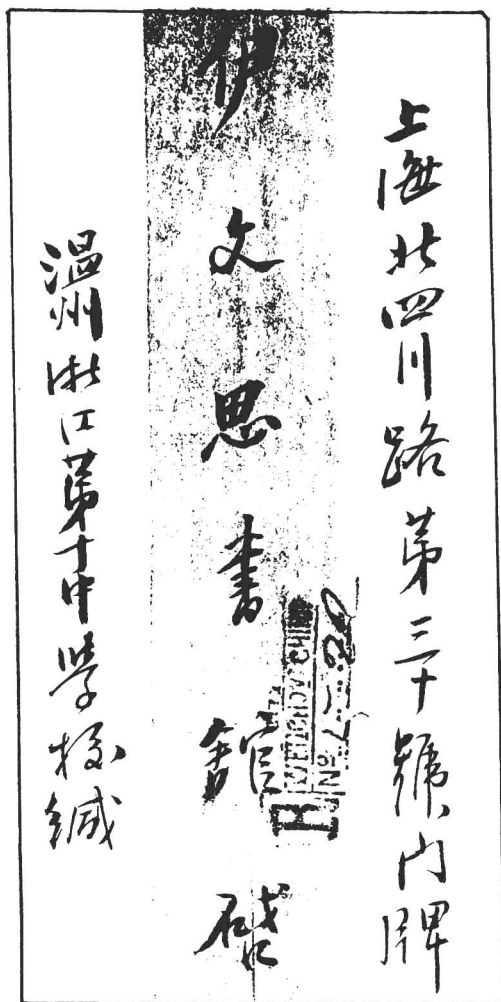 上海北四川路第三十號門牌
伊文思書館啓
溫州浙江第十中學校緘
R